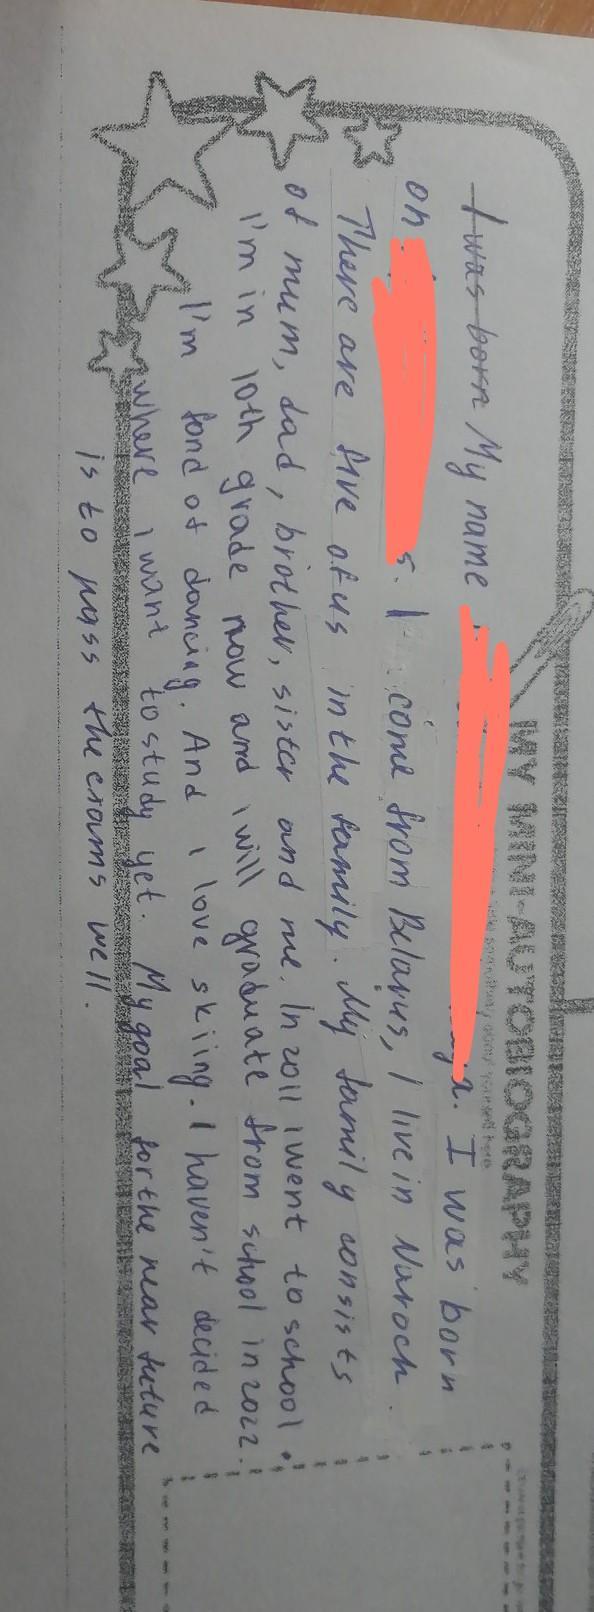 MY MINI-AUTOBIOGRAPHY
I was born My name
I was born
on
I come from Belarus, I live in Naroch.
There are five of us in the family. My family consists
of mum, dad, brother, sister and me. In 2011 i went to school.
I'm in 10th grade now and i will graduate from school in 2022.
I'm fond of dancing. And i love skiing. I haven't decided
where i want to study yet. My goal for the near future
is to pass the exams well.